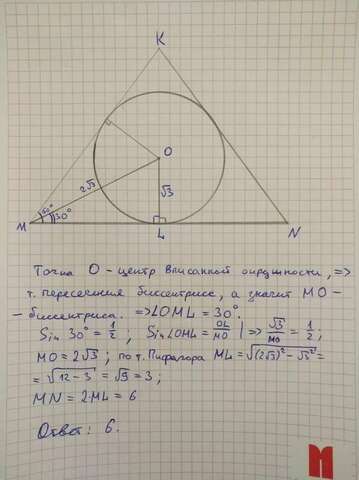 K
O
2√3
√3
60°
30°
M
L
N
Точка O - центр вписанной окружности, =>
т. пересечения биссектрис, а значит MO -
- биссектриса. => ∠OML = 30°.
Sin 30° = 1/2 ; Sin∠OML = OL/MO | => √3/MO = 1/2,
MO = 2√3 ; по т. Пифагора ML = √((2√3)² - √3²) =
= √(12 - 3) = √9 = 3 ;
MN = 2·ML = 6
Ответ: 6.
M